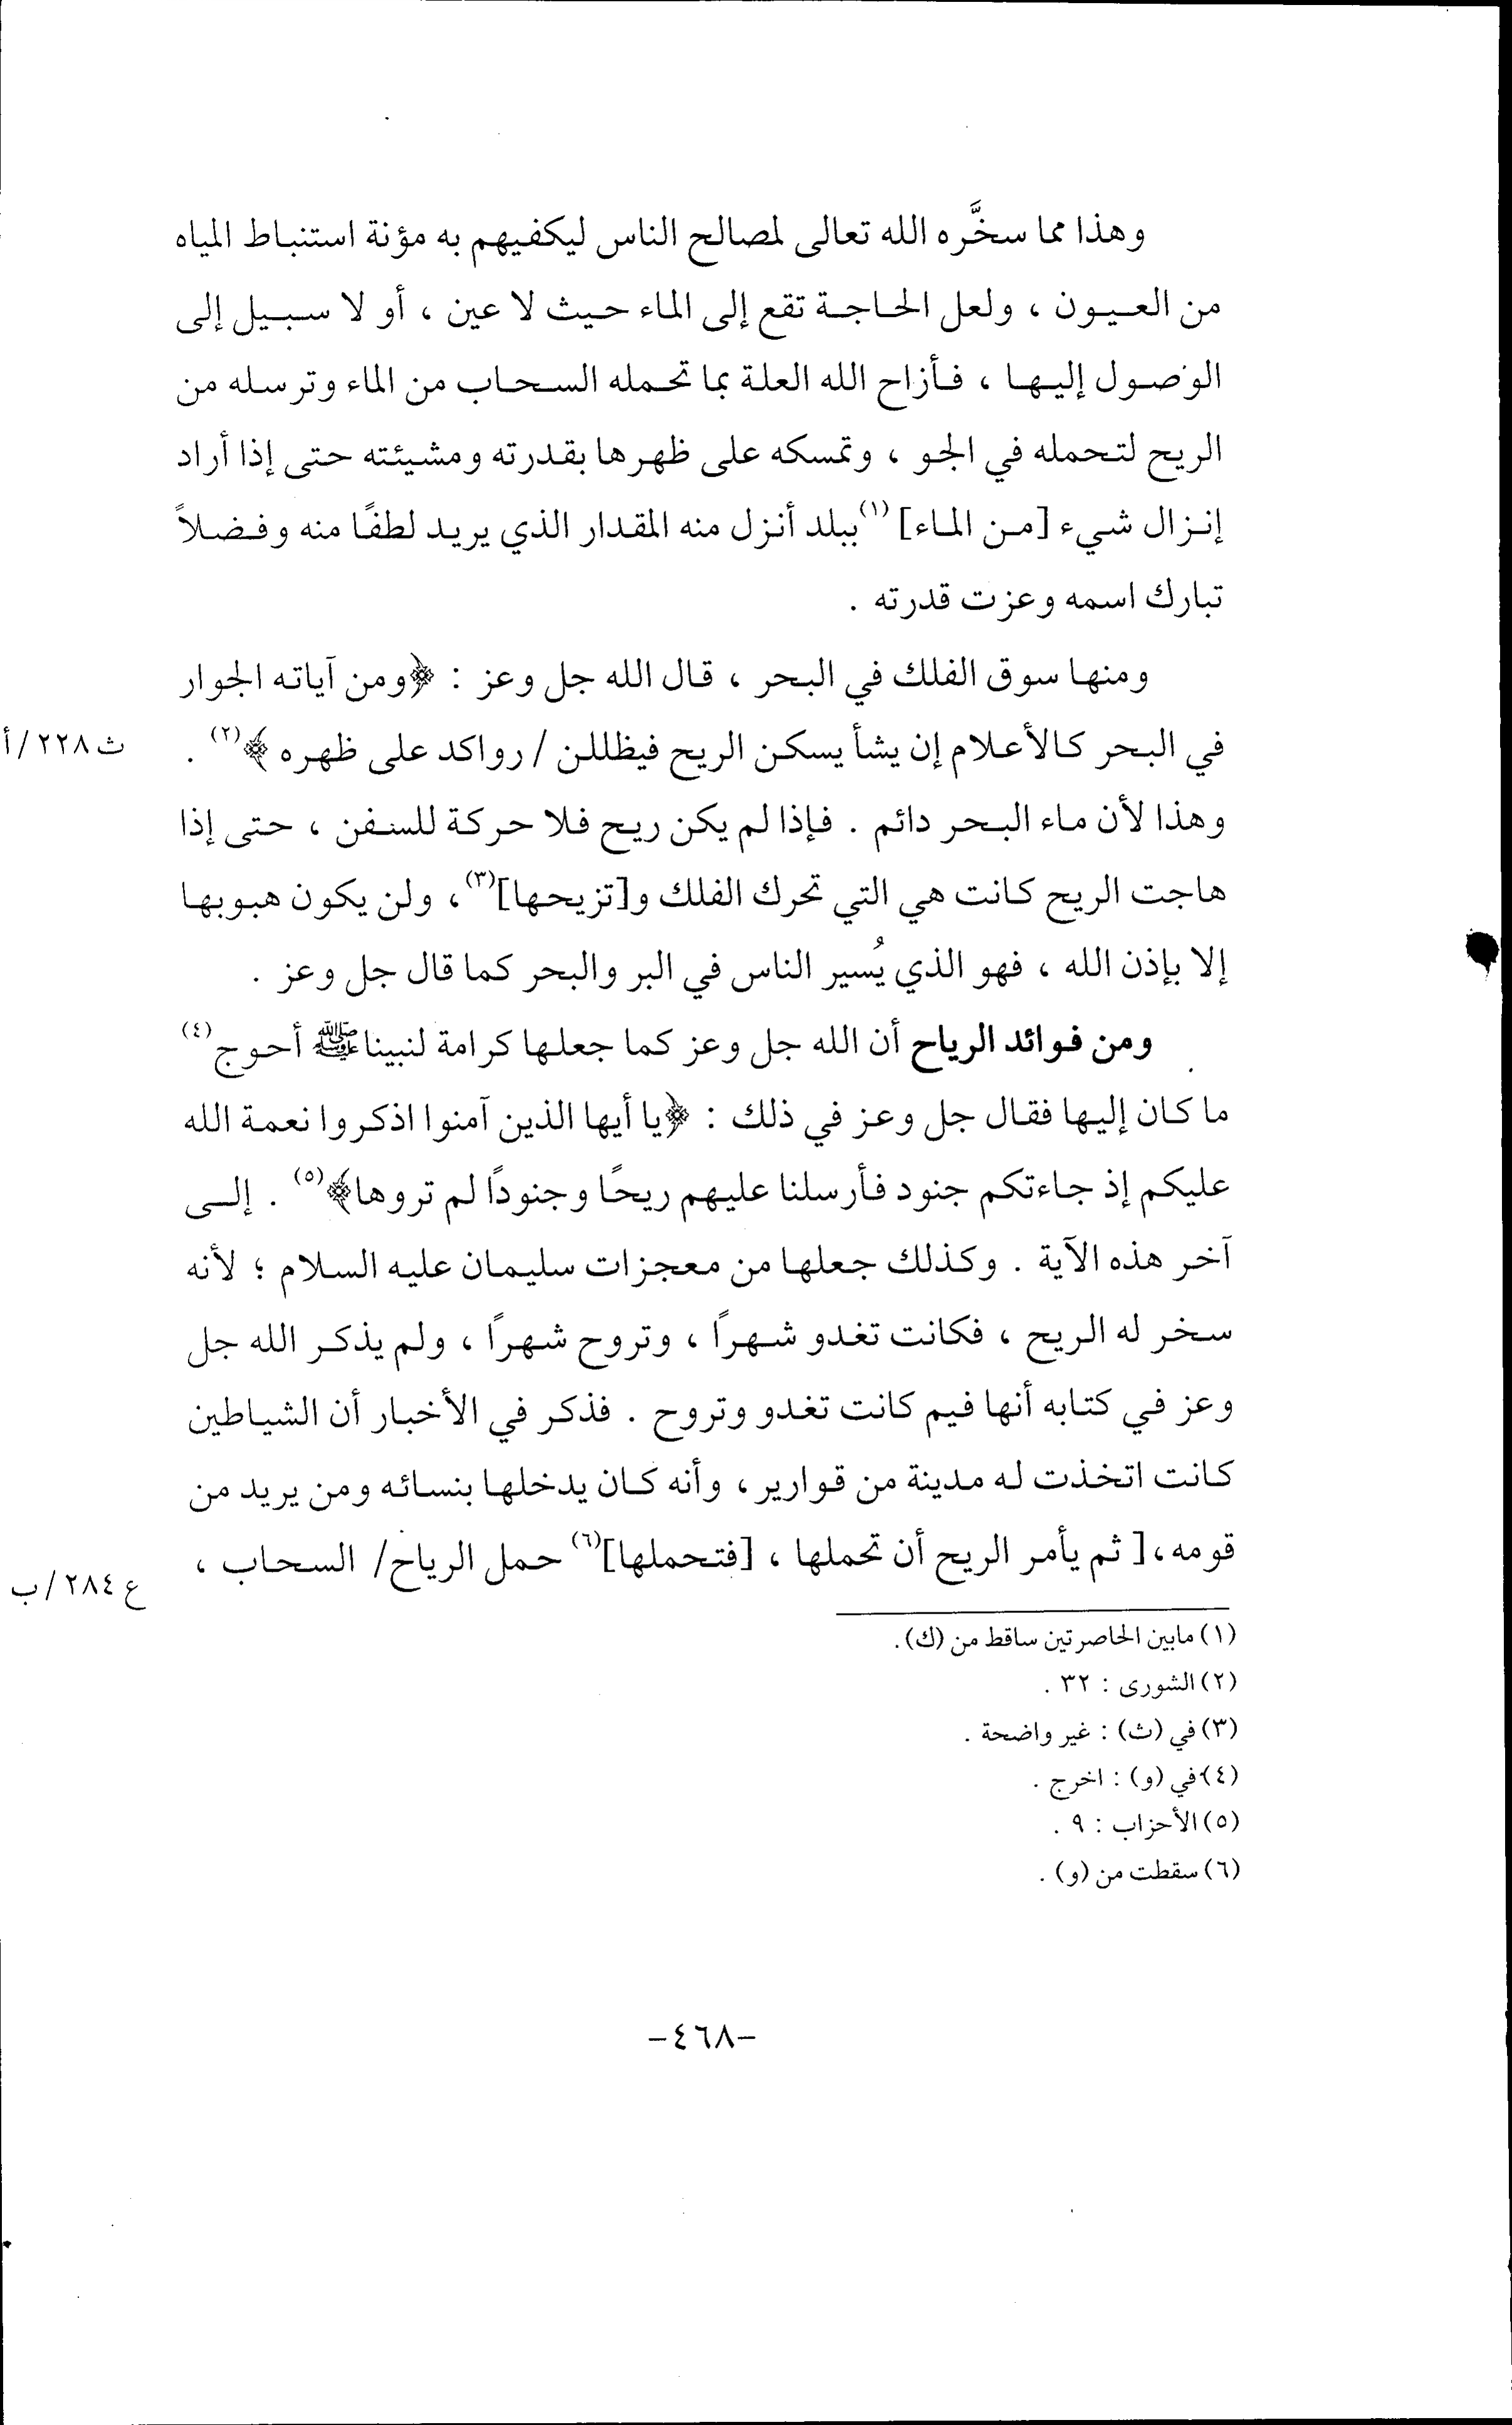 وهذا مما سخَّره الله تعالى لمصالح الناس ليكفيهم به مؤنة استنباط المياه
من العيون ، ولعل الحاجة تقع إلى الماء حيث لا عين ، أو لا سبيل إلى
الوصول إليها ، فأزاح الله العلة بما تحمله السحاب من الماء وترسله من
الريح لتحمله في الجو ، وتمسكه على ظهرها بقدرته ومشيئته حتى إذا أراد
إنزال شيء [من الماء] (١) ببلد أنزل منه المقدار الذي يريد لطفًا منه وفضلاً
تبارك اسمه وعزت قدرته .
ومنها سوق الفلك في البحر ، قال الله جل وعز : ﴿ومن آياته الجوار
في البحر كالأعلام إن يشأ يسكن الريح فيظللن / رواكد على ظهره ﴾(٢) .
ث ٢٢٨/أ
وهذا لأن ماء البحر دائم . فإذا لم يكن ريح فلا حركة للسفن ، حتى إذا
هاجت الريح كانت هي التي تحرك الفلك و[تزيحها](٣) ، ولن يكون هبوبها
إلا بإذن الله ، فهو الذي يُسير الناس في البر والبحر كما قال جل وعز .
ومن فوائد الرياح أن الله جل وعز كما جعلها كرامة لنبينا ﷺ أحوج(٤)
ما كان إليها فقال جل وعز في ذلك : ﴿يا أيها الذين آمنوا اذكروا نعمة الله
عليكم إذ جاءتكم جنود فأرسلنا عليهم ريحًا وجنودًا لم تروها﴾(٥) . إلى
آخر هذه الآية . وكذلك جعلها من معجزات سليمان عليه السلام ؛ لأنه
سخر له الريح ، فكانت تغدو شهرًا ، وتروح شهرًا ، ولم يذكر الله جل
وعز في كتابه أنها فيم كانت تغدو وتروح . فذكر في الأخبار أن الشياطين
كانت اتخذت له مدينة من قوارير ، وأنه كان يدخلها بنسائه ومن يريد من
قومه ، [ ثم يأمر الريح أن تحملها ، [فتحملها](٦) حمل الرياح/ السحاب ،
ع ٢٨٤/ب
(١) مابين الحاصرتين ساقط من (ك) .
(٢) الشورى : ٣٢ .
(٣) في (ث) : غير واضحة .
(٤) في (و) : اخرج .
(٥) الأحزاب : ٩ .
(٦) سقطت من (و) .
-٤٦٨-